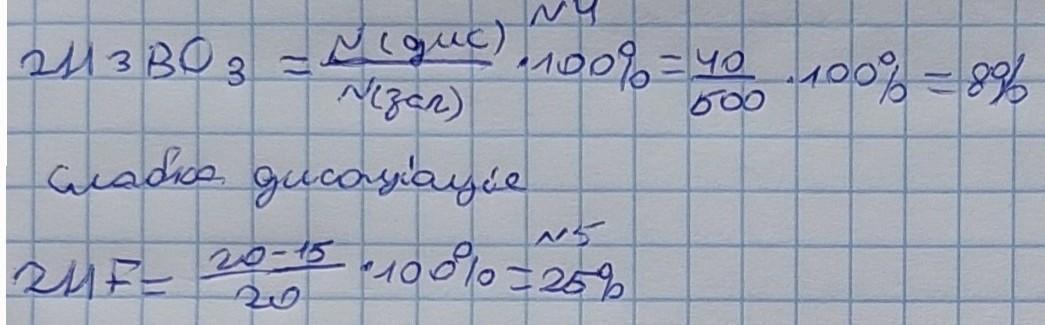 №4
2H3BO3 = N(дис)/N(заг) · 100% = 40/500 · 100% = 8%
слабка дисоціація
№5
2HF = 20-15/20 · 100% = 25%